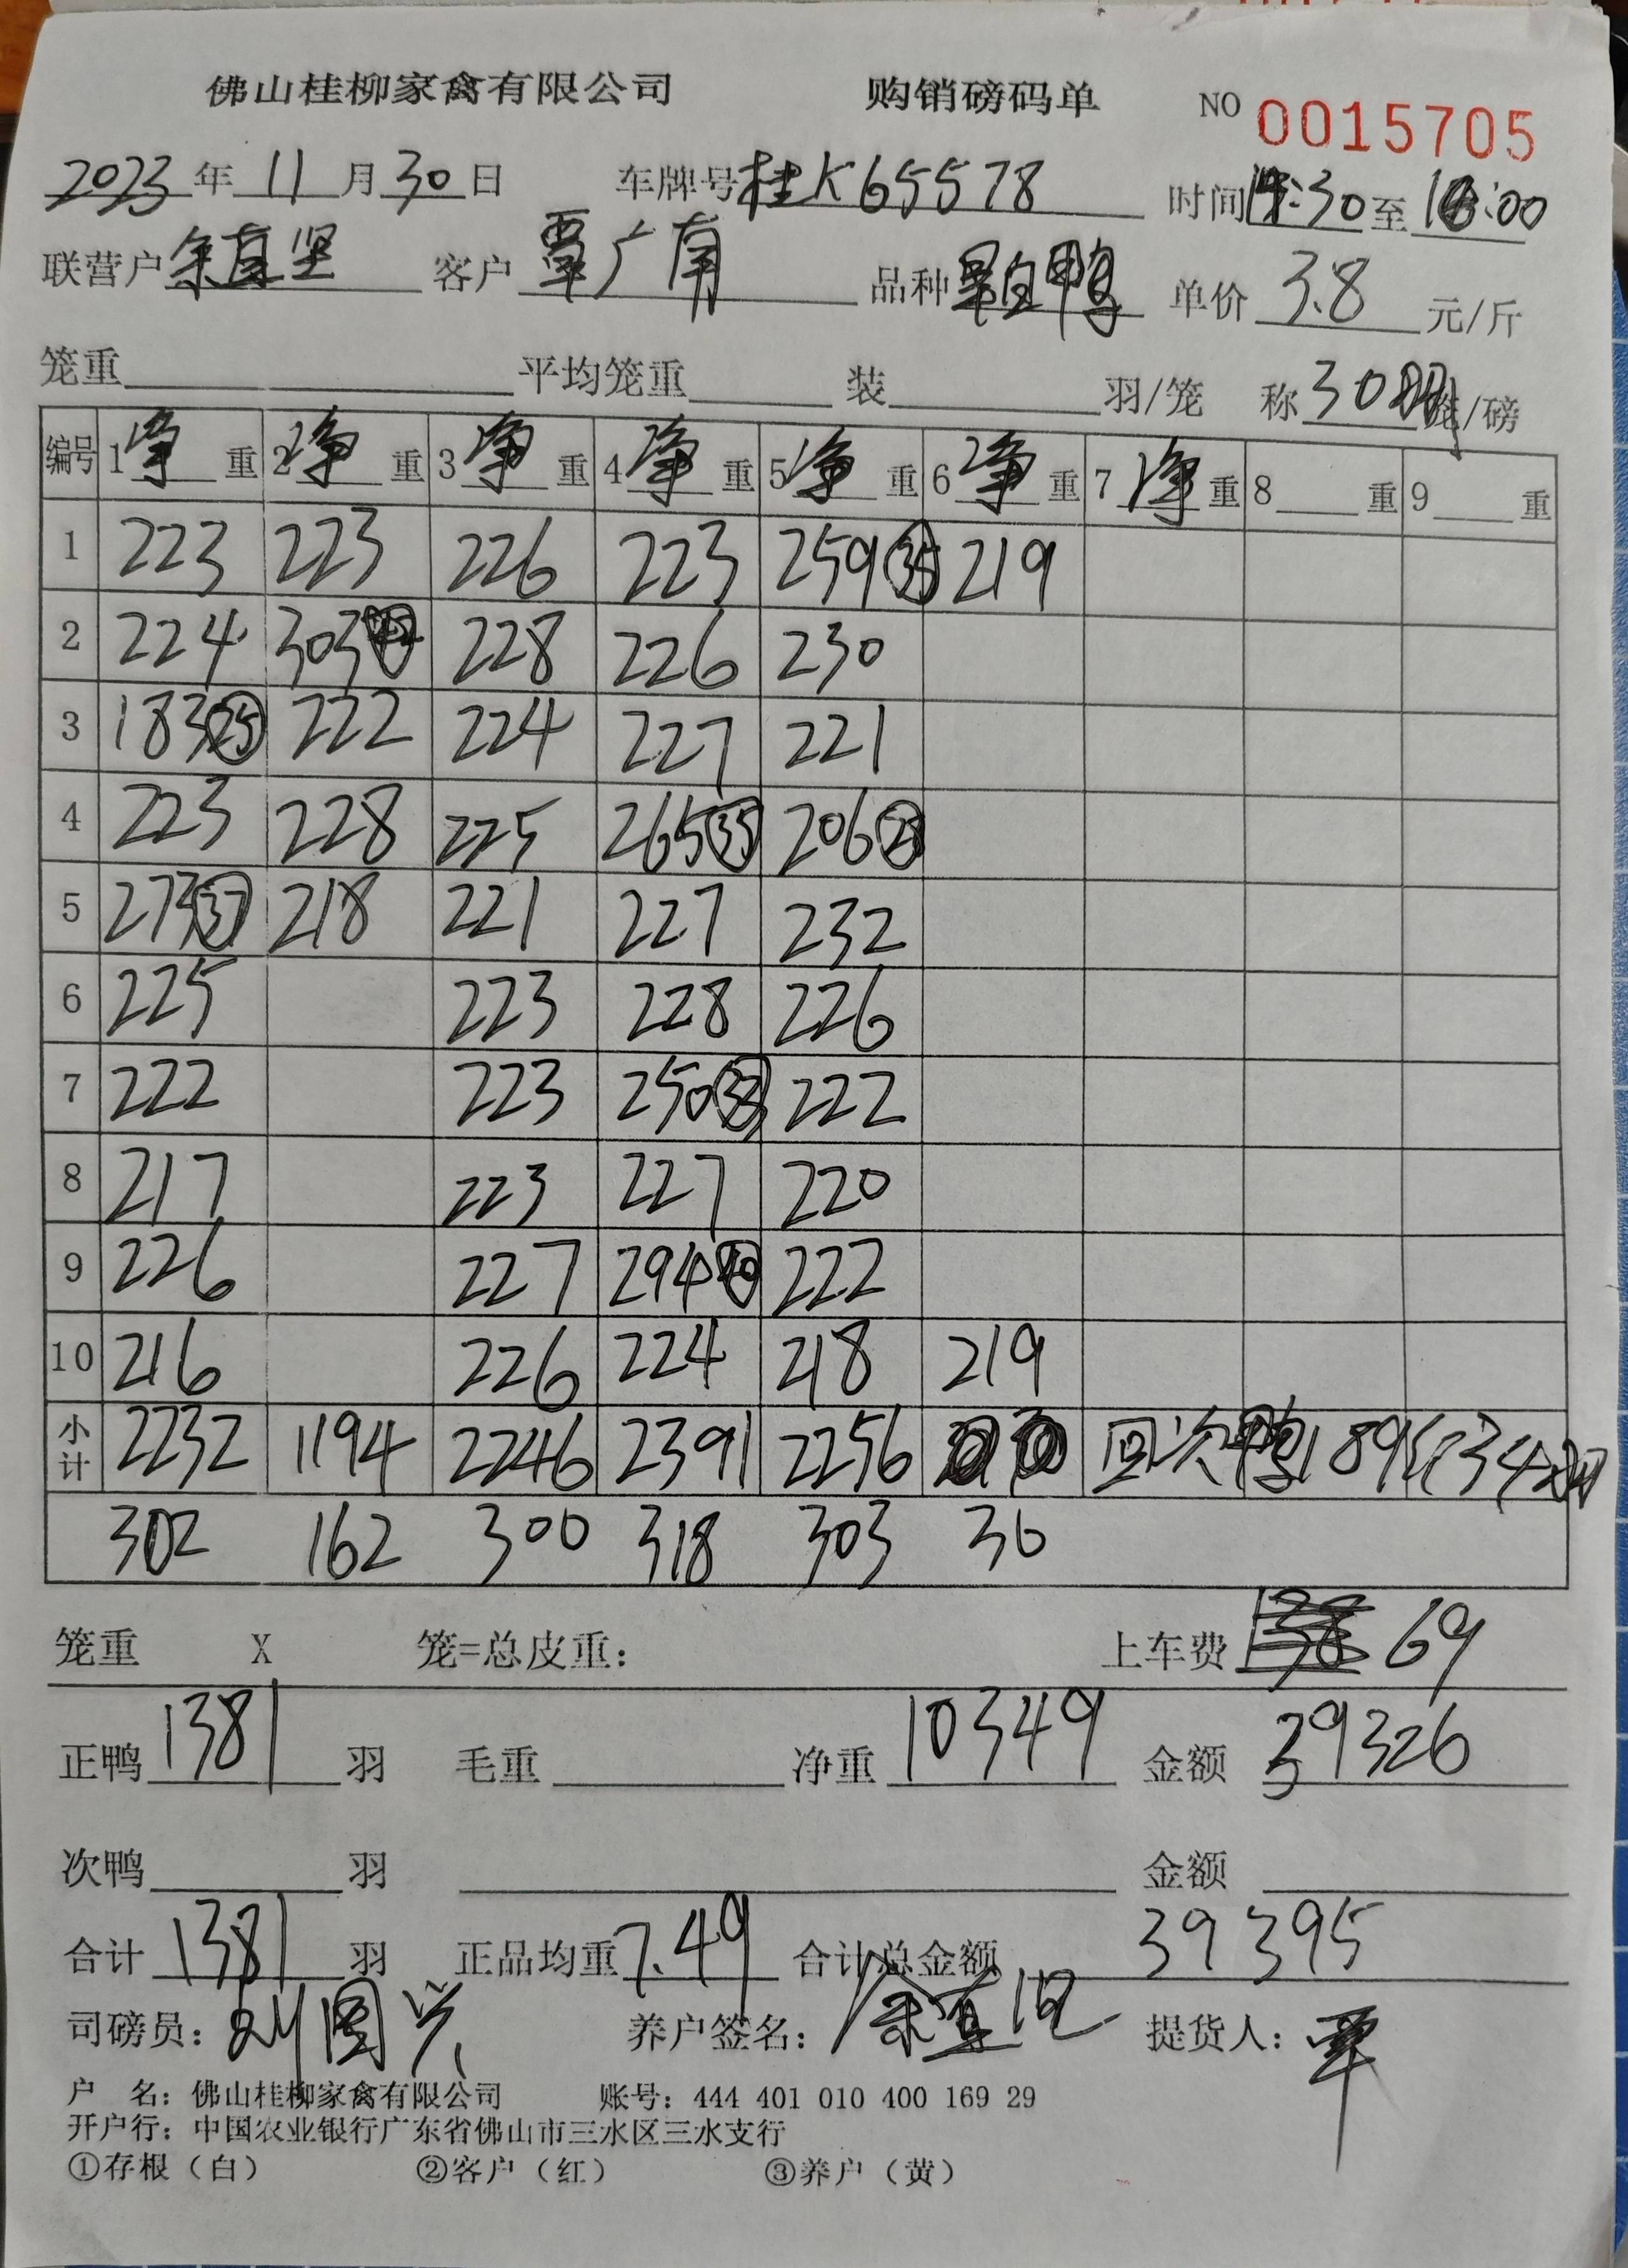 佛山桂柳家禽有限公司 购销磅码单 NO 0015705
2023年11月30日 车牌号桂K65578 时间 :30至 :00
联营户余直坚 客户覃广南 品种 白鸭 单价3.8元/斤
笼重 平均笼重 装 羽/笼 称30 /磅
编号 1净重 2净重 3净重 4净重 5净重 6净重 7净重 8 重 9 重
1 223 223 226 223 259 35 219
2 224 303 228 226 230
3 183 25 222 224 227 221
4 223 228 225 265 35 206 28
5 273 37 218 221 227 232
6 225 223 228 226
7 222 223 250 33 222
8 217 223 227 220
9 226 227 294 40 222
10 216 226 224 218 219
小计 2232 1194 2246 2391 2256 回次鸭189斤(34
302 162 300 318 303 30
笼重 X 笼=总皮重: 上车费 69
正鸭1381羽 毛重 净重10349 金额39326
次鸭 羽 金额
合计1381羽 正品均重7.49 合计总金额39395
司磅员:刘国兴 养户签名:余直坚 提货人:覃
户 名:佛山桂柳家禽有限公司 账号:444 401 010 400 169 29
开户行:中国农业银行广东省佛山市三水区三水支行
①存根(白) ②客户(红) ③养户(黄)